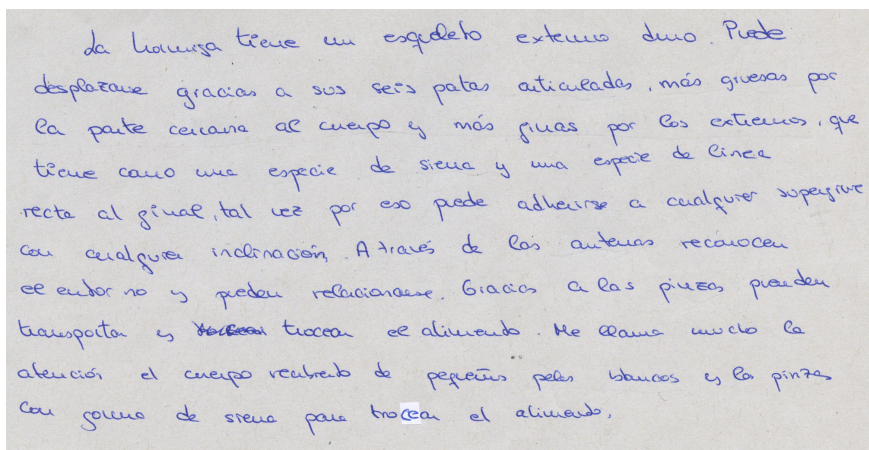 La hormiga tiene un esqueleto externo duro. Puede
desplazarse gracias a sus seis patas articuladas, más gruesas por
la parte cercana al cuerpo y más finas por los extremos, que
tiene como una especie de sierra y una especie de línea
recta al final, tal vez por eso puede adherirse a cualquier superficie
con cualquier inclinación. A través de las antenas reconocen
el entorno y pueden relacionarse. Gracias a las pinzas pueden
transportar y trocear el alimento. Me llama mucho la
atención el cuerpo recubierto de pequeños pelos blancos y las pinzas
con forma de sierra para trocear el alimento.